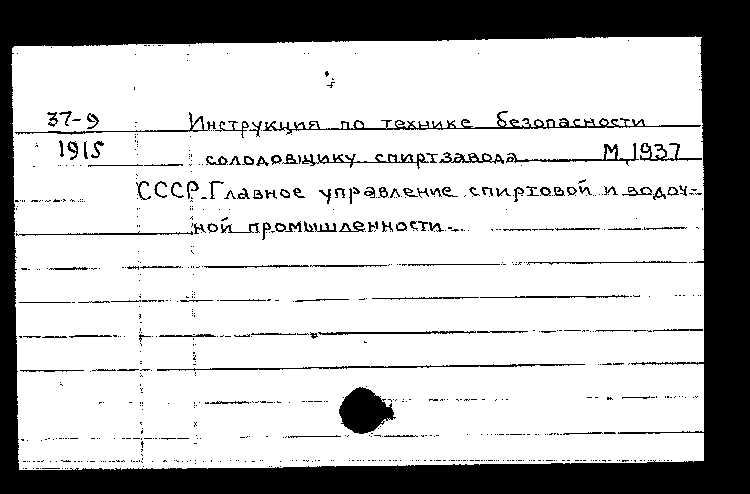 37-9 Инструкция по технике безопасности
1915 солодовщику спиртзавода М, 1937
СССР. Главное управление спиртовой и водоч-
ной промышленности.